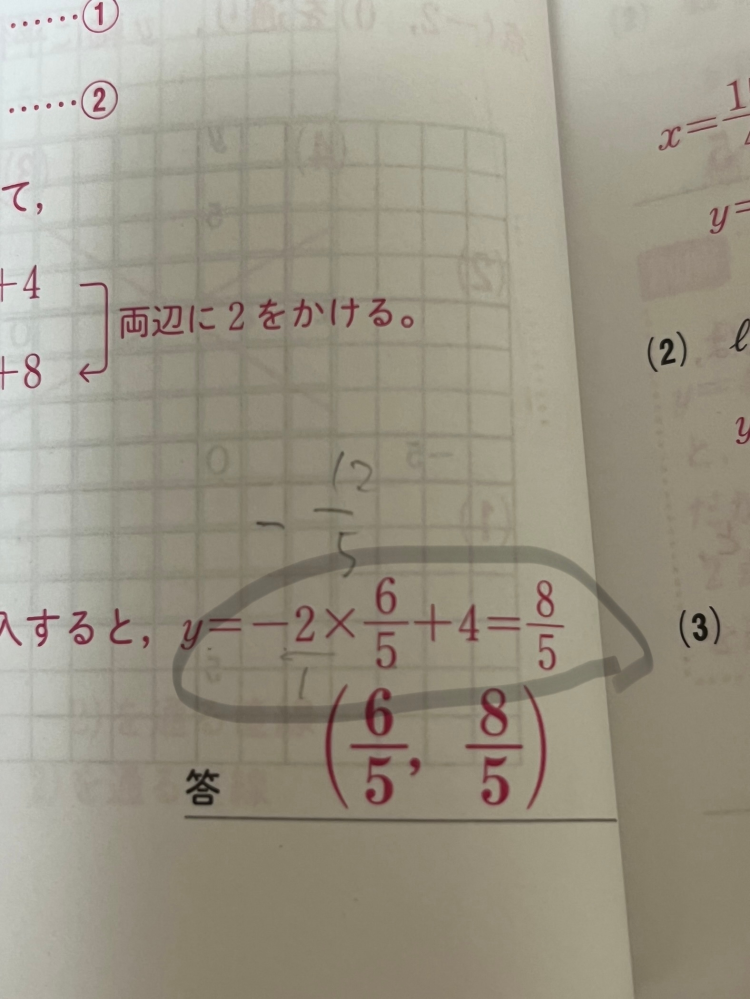 ……①
……②
て，
+4
両辺に2をかける。
+8
- 12/5
入すると，y=-2×6/5+4=8/5
1
答 (6/5, 8/5)
x=
y=
(2) ℓ
y
(3)